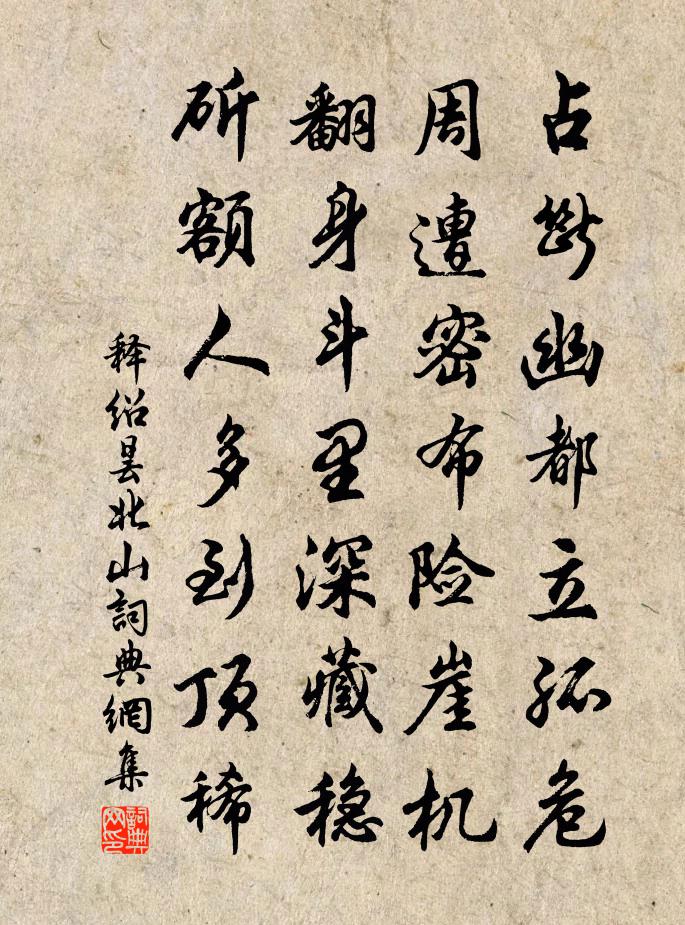 占断幽都立孤危
周遭密布险崖机
翻身斗里深藏稳
斫额人多到顶稀
释绍昙北山詞典網集
詞典网印